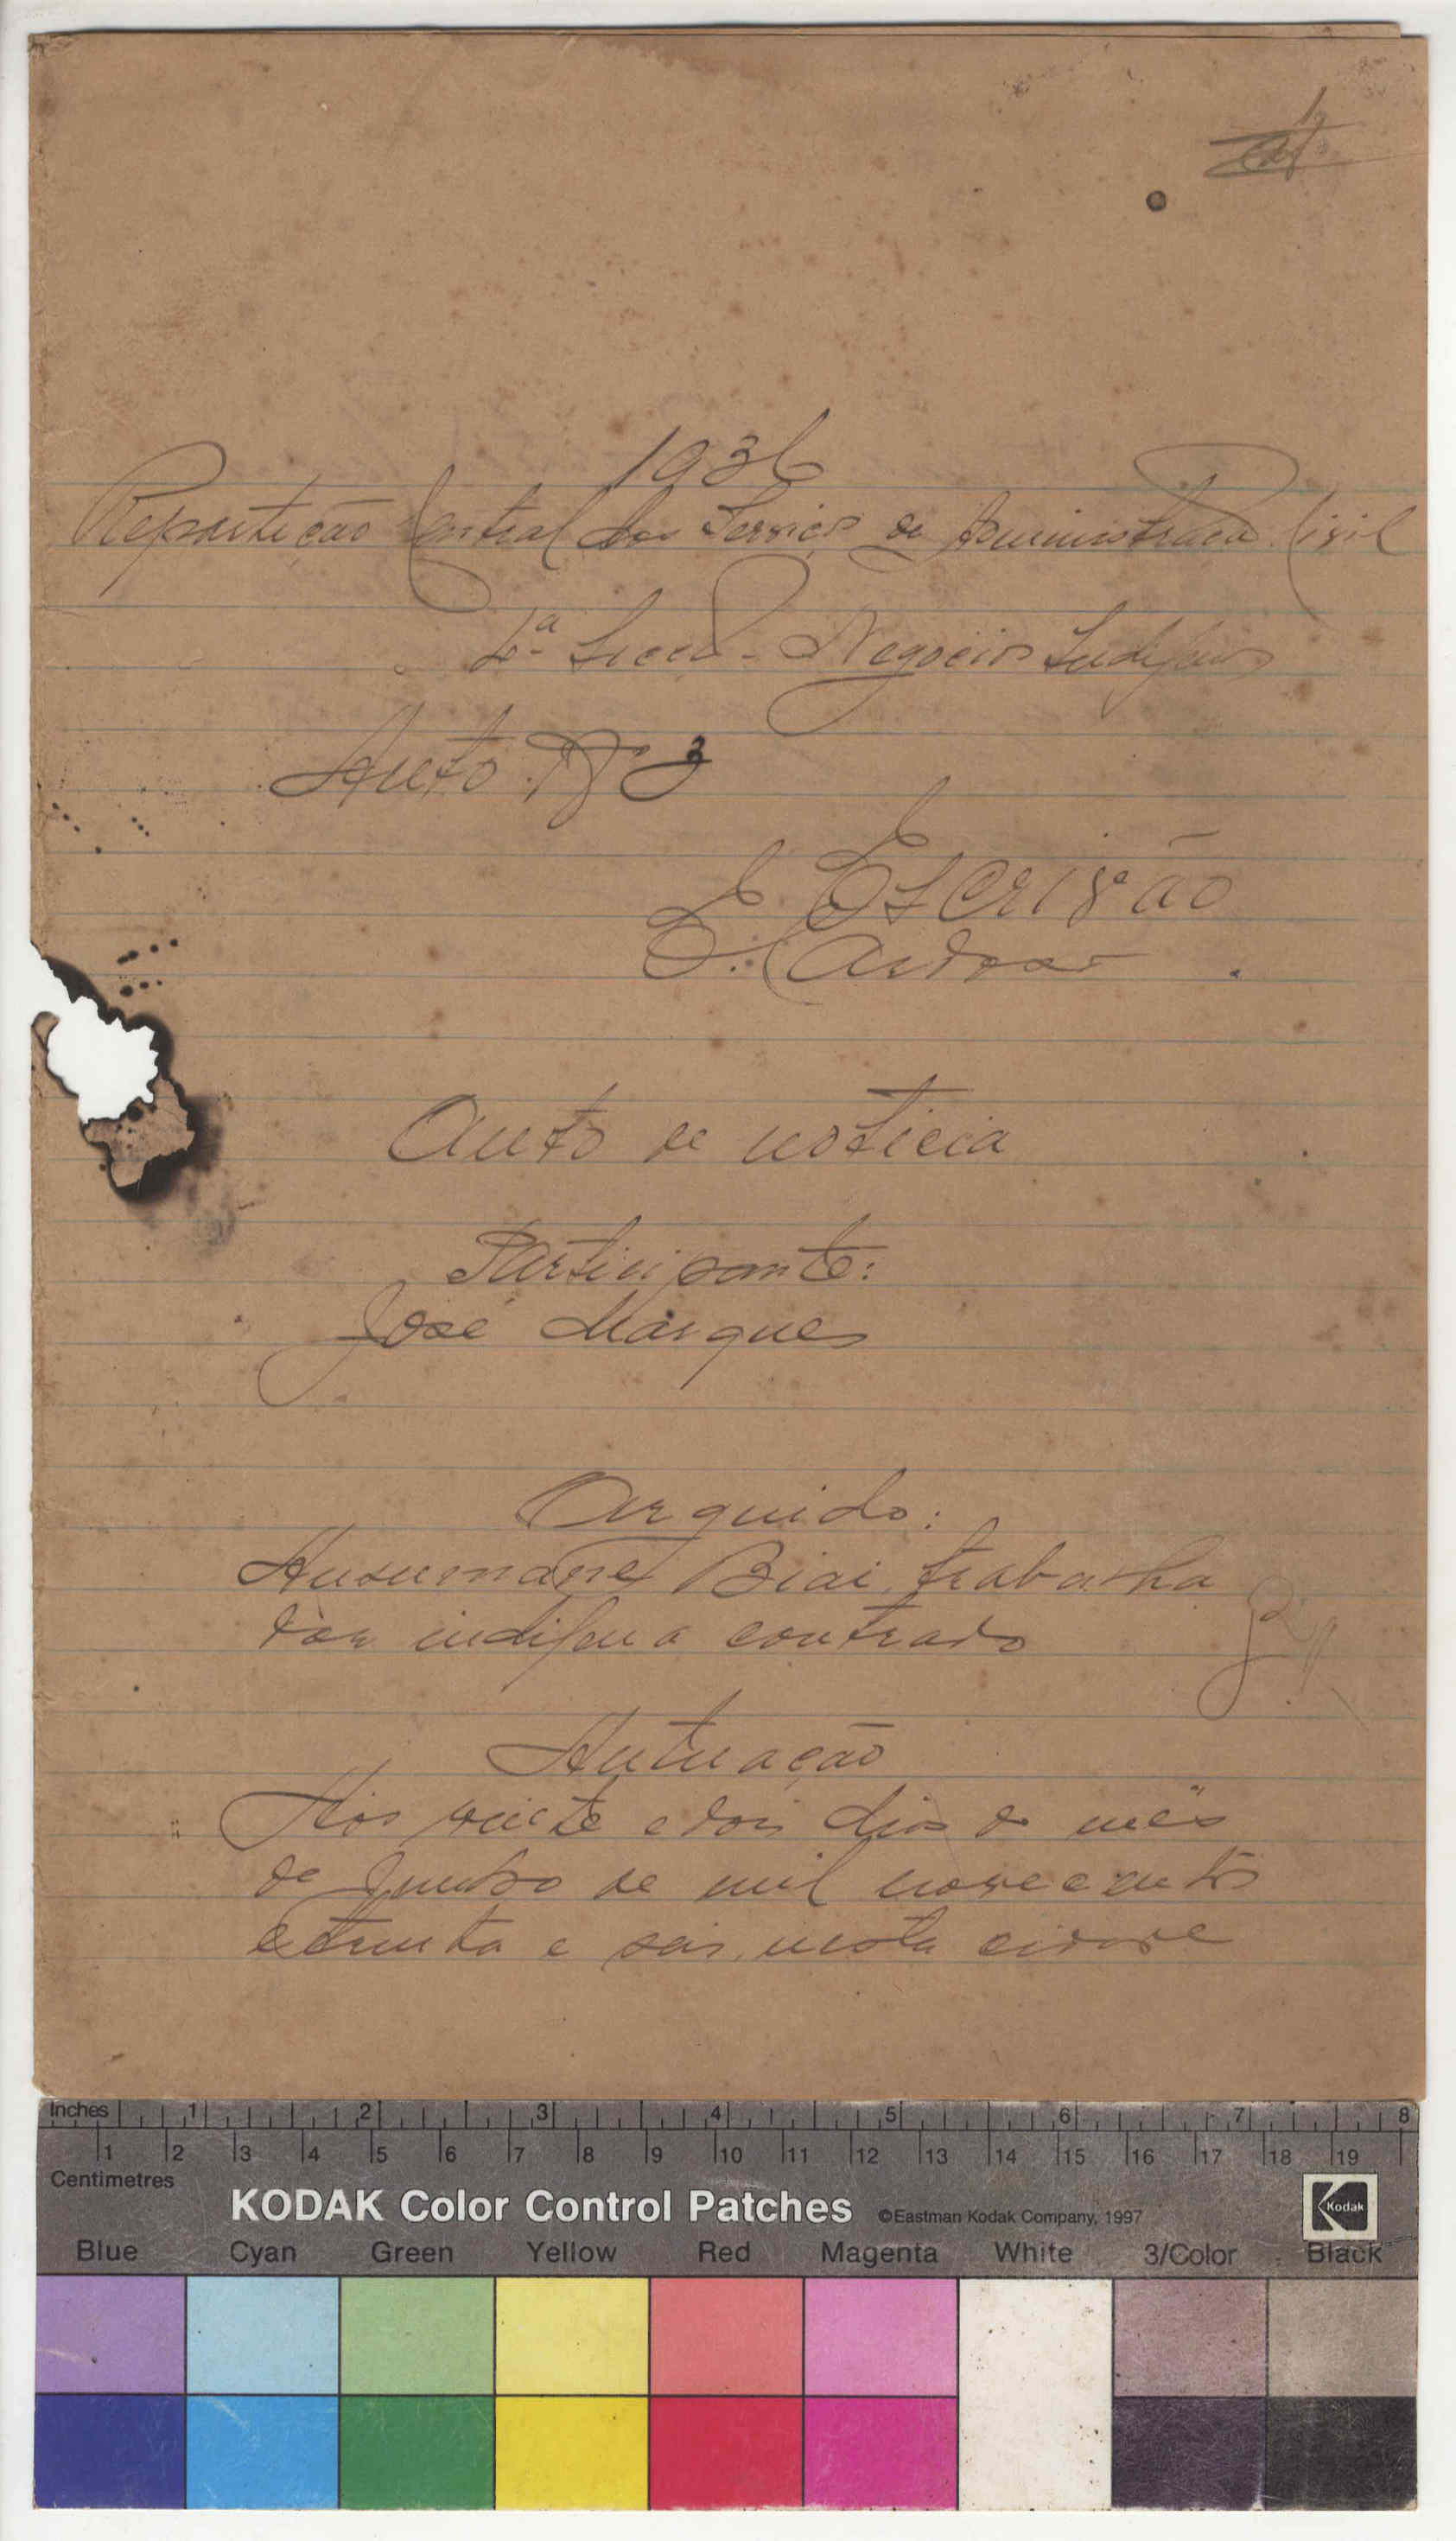 1936
Repartição Central dos Serviços de Administração Civil
1.ª Secção - Negocios Indigenas
Auto N.º 3
O Escrivão
E. Cardoso
Auto de noticia
Participante:
José Marques
Arguido:
Ansumane Biai, trabalha
dor indigena contrado
Autuação
Aos vinte e dois dias do mês
de Junho de mil novecentos
e trinta e seis, nesta cidade
Inches 1 2 3 4 5 6 7 8
1 2 3 4 5 6 7 8 9 10 11 12 13 14 15 16 17 18 19
Centimetres
KODAK Color Control Patches ©Eastman Kodak Company, 1997 Kodak
Blue Cyan Green Yellow Red Magenta White 3/Color Black